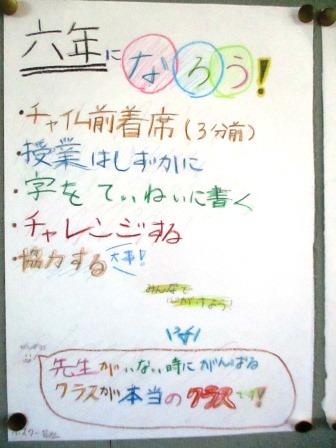 六年になろう!
・チャイム前着席(3分前)
・授業はしずかに
・字をていねいに書く
・チャレンジする
・協力する 大事!
みんなで
先生がいない時にがんばる
クラスが本当のクラスです!